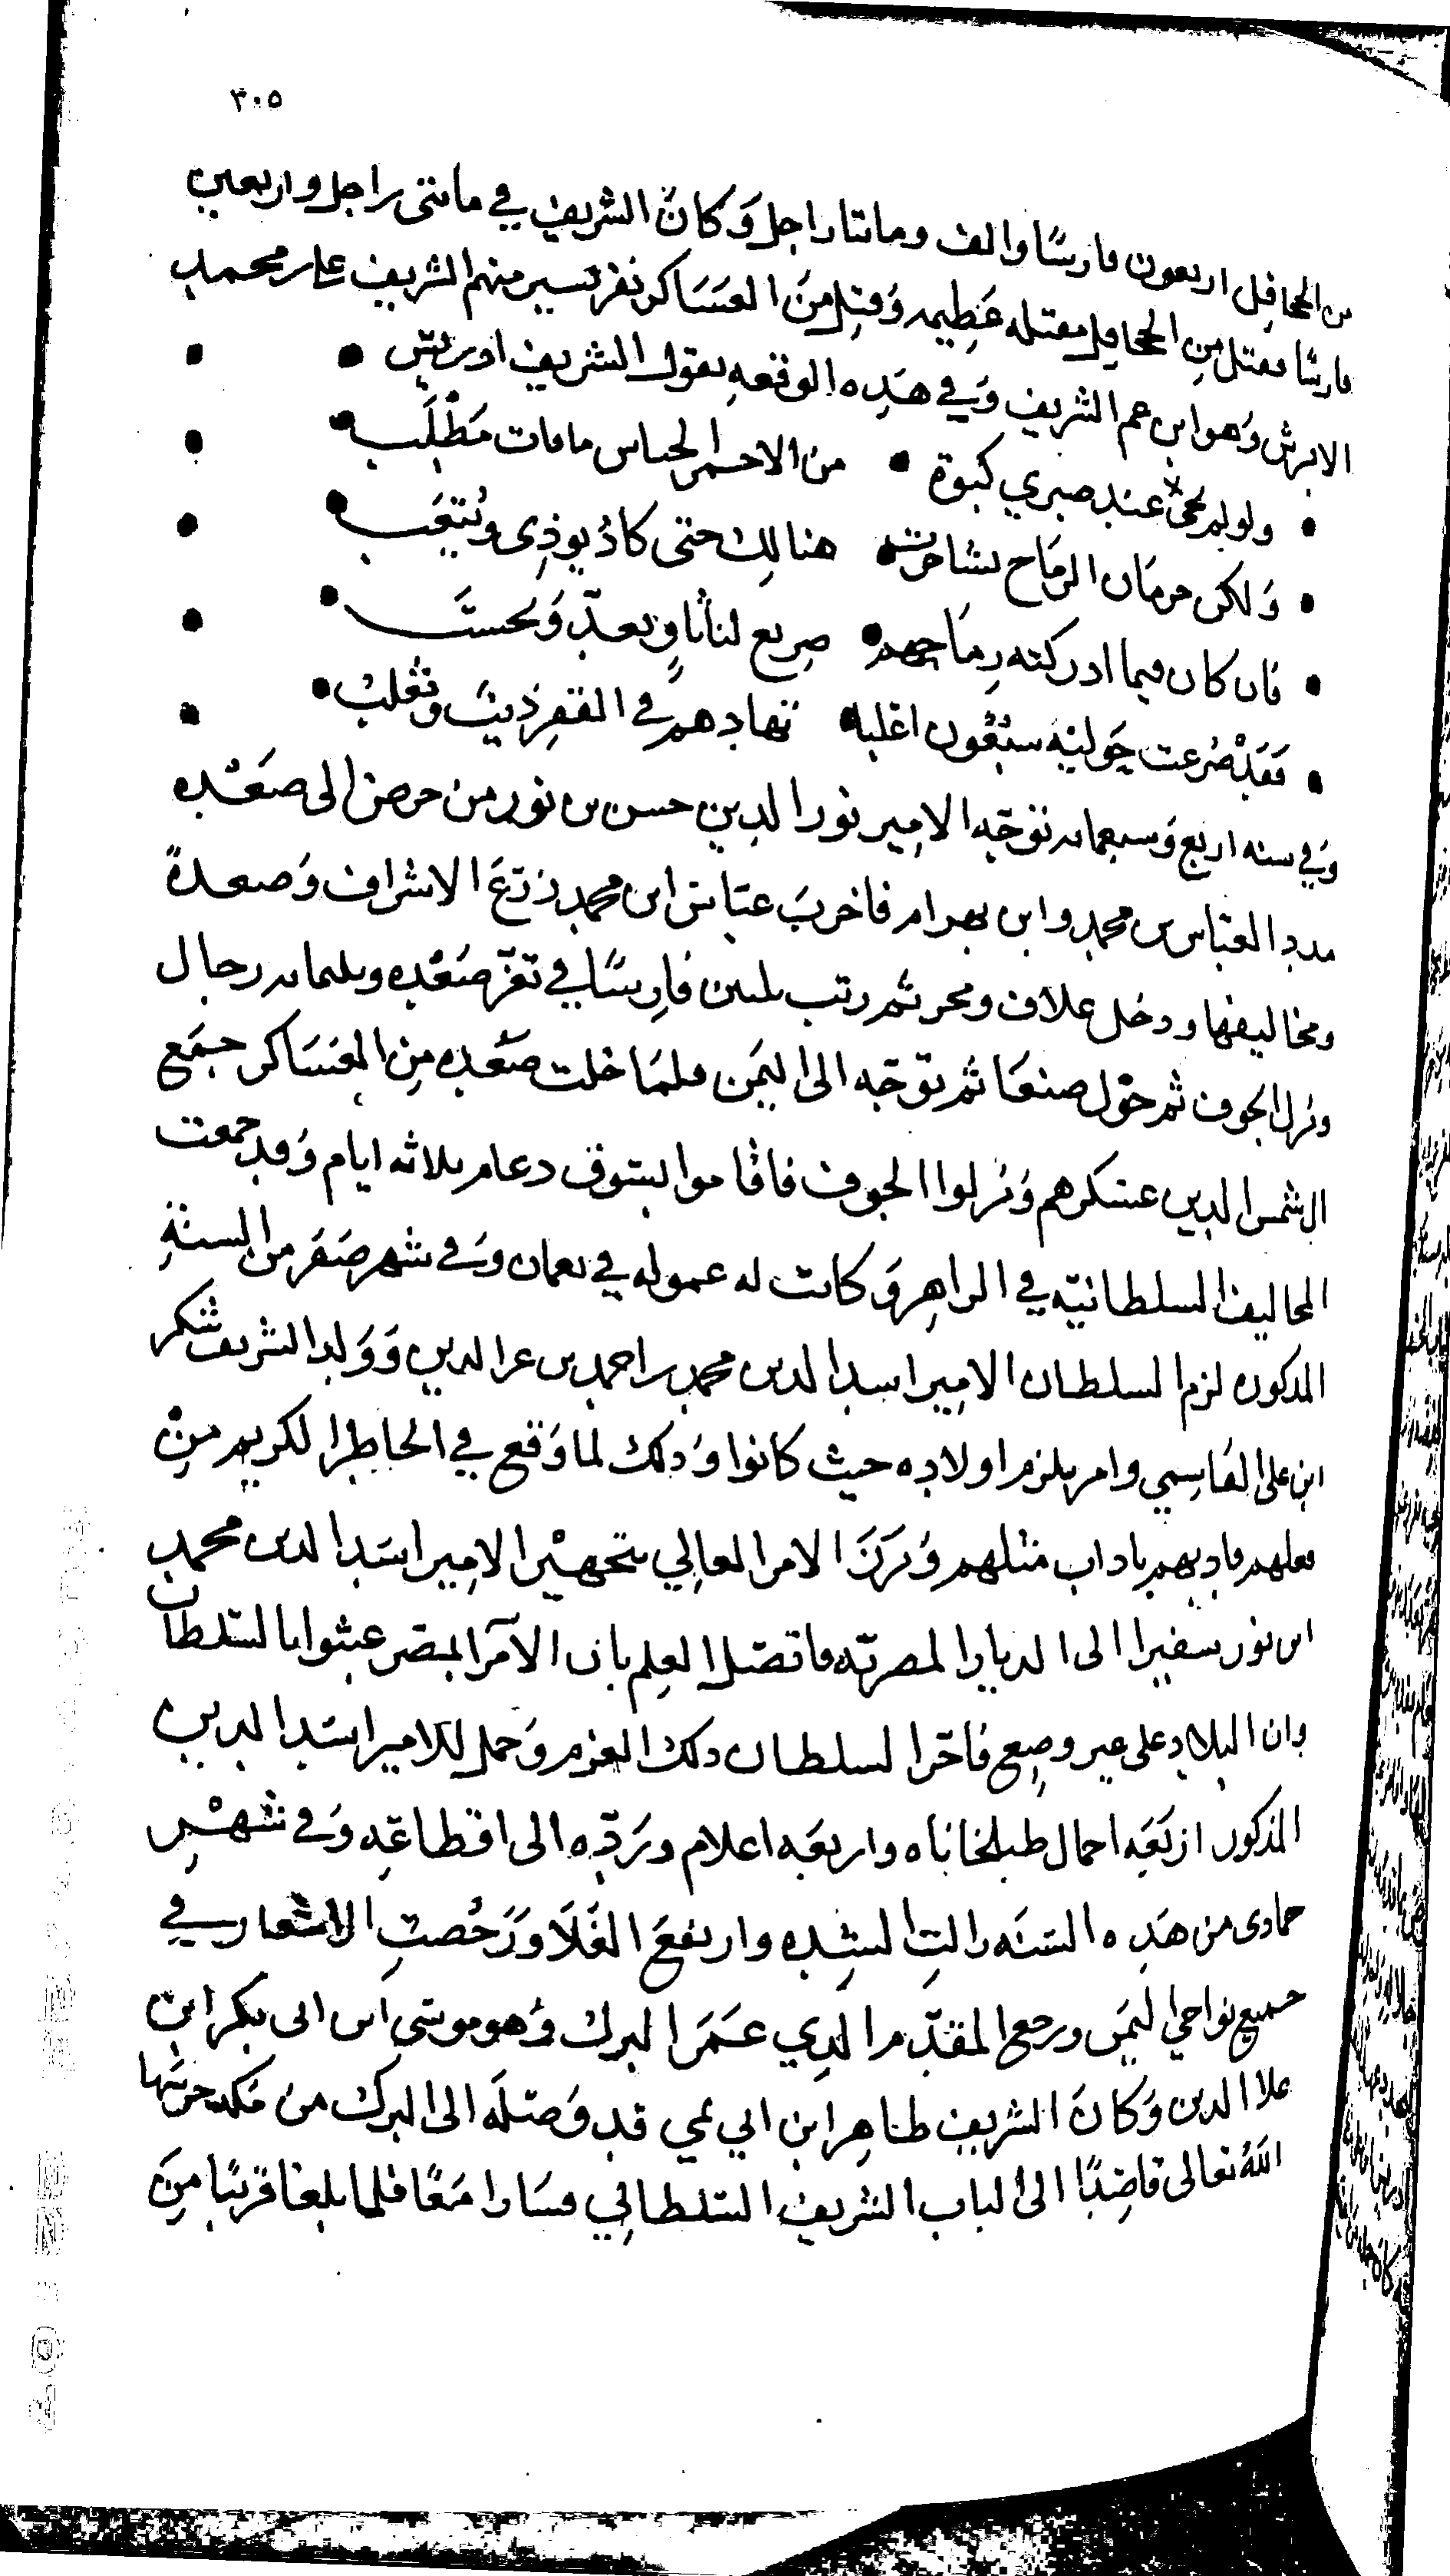 ٣٠٥
من الجحافل اربعون فارسًا والف ومائتا راجل وَكانَ الشريف في مائتى راجل واربعين
فارسًا فقتل من الجحافِل مقتله عَظِيمه وَقتِل مِنَ العسَاكر نفر يسير منهم الشريف على بن محمد
الابرش وَهو ابن عم الشريف وَفي هَذِه الوقعهِ يقول الشريف ادريس
ولو لم عند صبري كبوة من الاحمر الحساس ما فات مَطْلَب
وَلكن حرمَان الرمَاح تشاجرت هنالِك حتى كادُ يوذِى وُيتعَب
فان كان فيما ادركته رِمَاحهم صرِيع لنا ثاوٍ يعدّ وَيحسَب
فَقَدْ صُرعت حَوليْه سَبْعُون اغلبا تهادهم في القفرِ ذيبٌ وثعلبْ
وَفي سنه اربع وَسبعمايه توَجّه الامِير نور الدِين حسن بن نور من حرض الى صعْده
مدد العبّاس بن محمد وابن بهرام فاخربَ عبّاس ابن محمد زرَع الاشراف وَصعدةَ
ومخاليفها ودخل علاف ومحر ثمر رتب ثلثين فارسًا في تعز صَعْده وثلثمايه رجال
ونزل الجوف ثم حوّل صنعَا ثم توَجّه الى اليَمن فلمَا خلت صَعْده مِن العسَاكر جمَع
ال شمس الدين عسكرهم وَنزلوا الجوف فاقاموا بسوق دعام ثلاثه ايام وَقد جمعت
المخاليف السلطانيّه في الزاهِر وَكانت له عموله في نعمان وَفي شهر صَفر من السنةِ
المذكوره لزم السلطان الامِير اسد الدين محمد بن احمد بن عز الدين وَوَلد الشريف شكر
ابن على القاسِمي وامر بلزم اولاده حيث كانوا وَذلك لما وَقع في الخاطِر الكريم مِنْ
فعلهم فادبهم باداب مثلهم وَبَرَزَ الامر العالِي بتجهِيْز الامِير اسَد الدين محمد
ابن نور سفيرا الى الديار المصريّه فاتصَل العِلم بان الآمَر المبصّر عبثوا بالسلطان
وان البلاد على غير وضِع فاخّر السلطان ذلك العَزم وَحمل للامير اسَد الدين
المذكور اربعَه احمال طبلخاناه واربعَه اعلام ورَدّه الى اقطاعِه وَفي شهْر
جمادى من هَذِه السَنَه زالتِ الشِده وارتفعَ الغَلَا وَرَخُصتِ الاسْعار في
جميع نواحي اليَمن ورجع المقدّم الذِي عَمَر البرك وَهو موسَى ابن ابى بكر ابن
علا الدين وَكانَ الشريف ظاهِر ابن ابي نمي قد وَصَلَه الى البرك من مَكه حرسَها
اللهُ تعالى قاصِدًا الى الباب الشريف السلطاني فسَارا مَعًا فلما بلغا قريبًا مِنَ